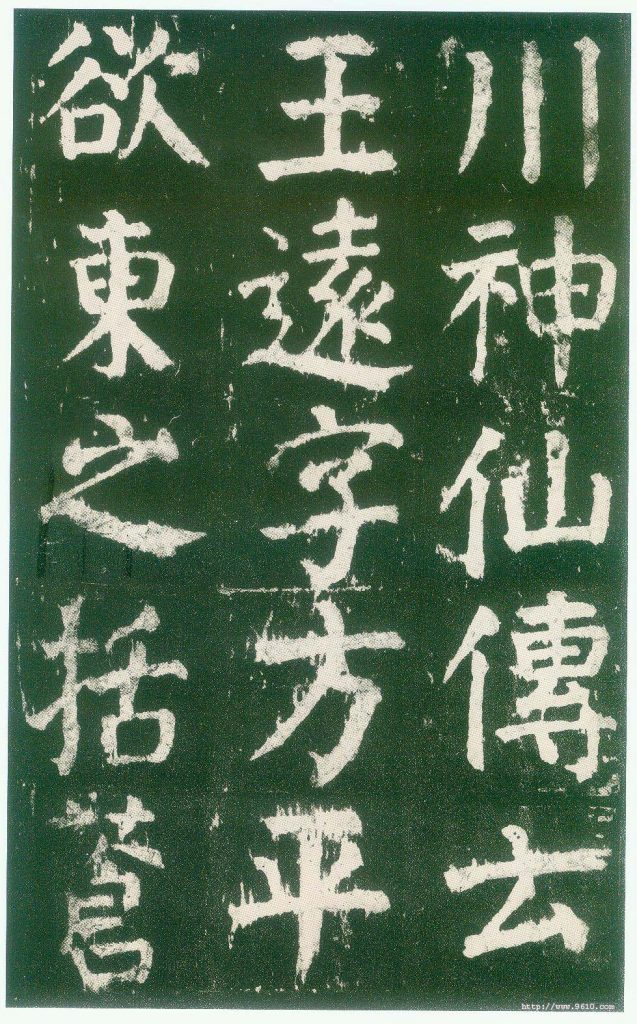 川神仙傳云
王遠字方平
欲東之括蒼
http://www.9610.com